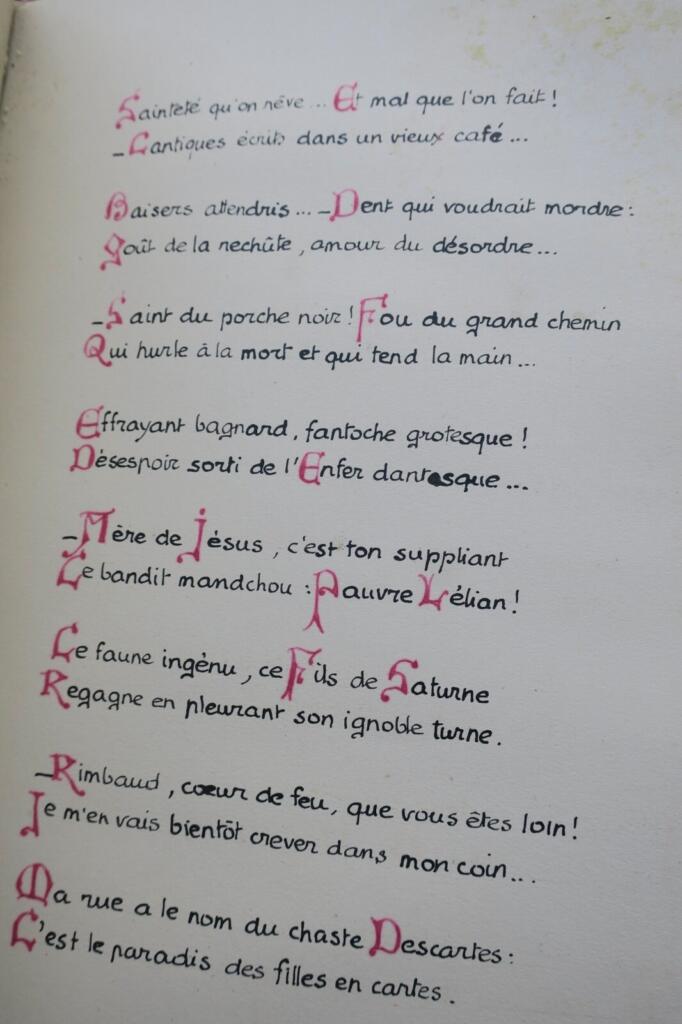 Sainteté qu'on rêve... Et mal que l'on fait !
_Cantiques écrits dans un vieux café...
Baisers attendris... _Dent qui voudrait mordre :
Goût de la rechûte, amour du désordre...
_Saint du porche noir ! Fou du grand chemin
Qui hurle à la mort et qui tend la main...
Effrayant bagnard, fantoche grotesque !
Désespoir sorti de l'Enfer dantesque...
_Mère de Jésus, c'est ton suppliant
Ce bandit mandchou : Pauvre Lélian !
Ce faune ingénu, ce Fils de Saturne
Regagne en pleurant son ignoble turne.
_Rimbaud, cœur de feu, que vous êtes loin !
Je m'en vais bientôt crever dans mon coin...
Ma rue a le nom du chaste Descartes :
C'est le paradis des filles en cartes.